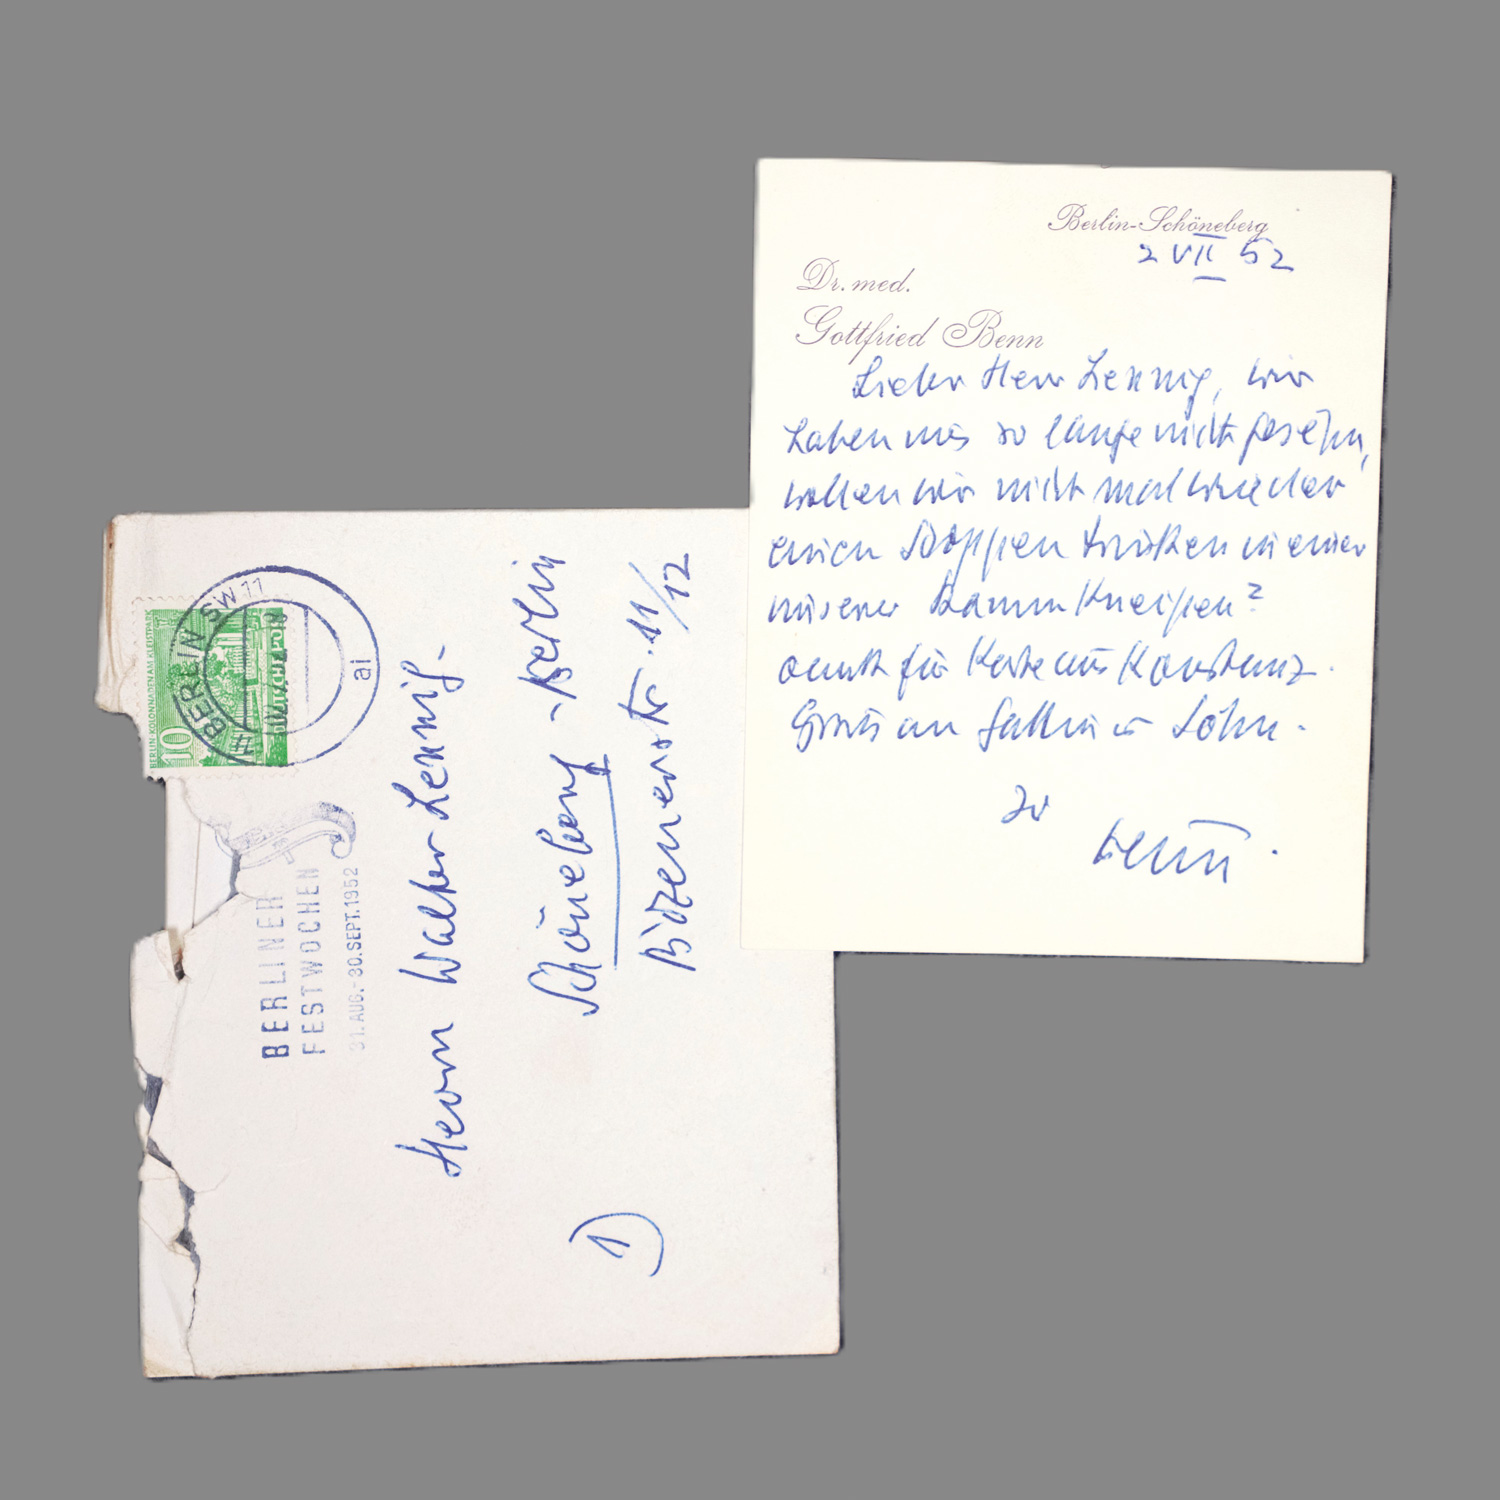 Berlin-Schöneberg
2 VII 52
Dr. med.
Gottfried Benn
Lieber Herr Lennig, wir
haben uns so lange nicht gesehn,
wollen wir nicht mal wieder
einen Schoppen trinken in einer
unserer Stammkneipen?
Dank für Karte aus Konstanz.
Gruss an Gattin u Sohn.
Ihr
Benn.
Herrn Walter Lennig.
Schöneberg - Berlin
Bozenerstr. 11/12
1)
BERLIN SW 11
ai
10
BERLIN · KOLONNADEN AM KLEISTPARK
DEUTSCHE POST
BERLINER
FESTWOCHEN
31.AUG.-30.SEPT.1952